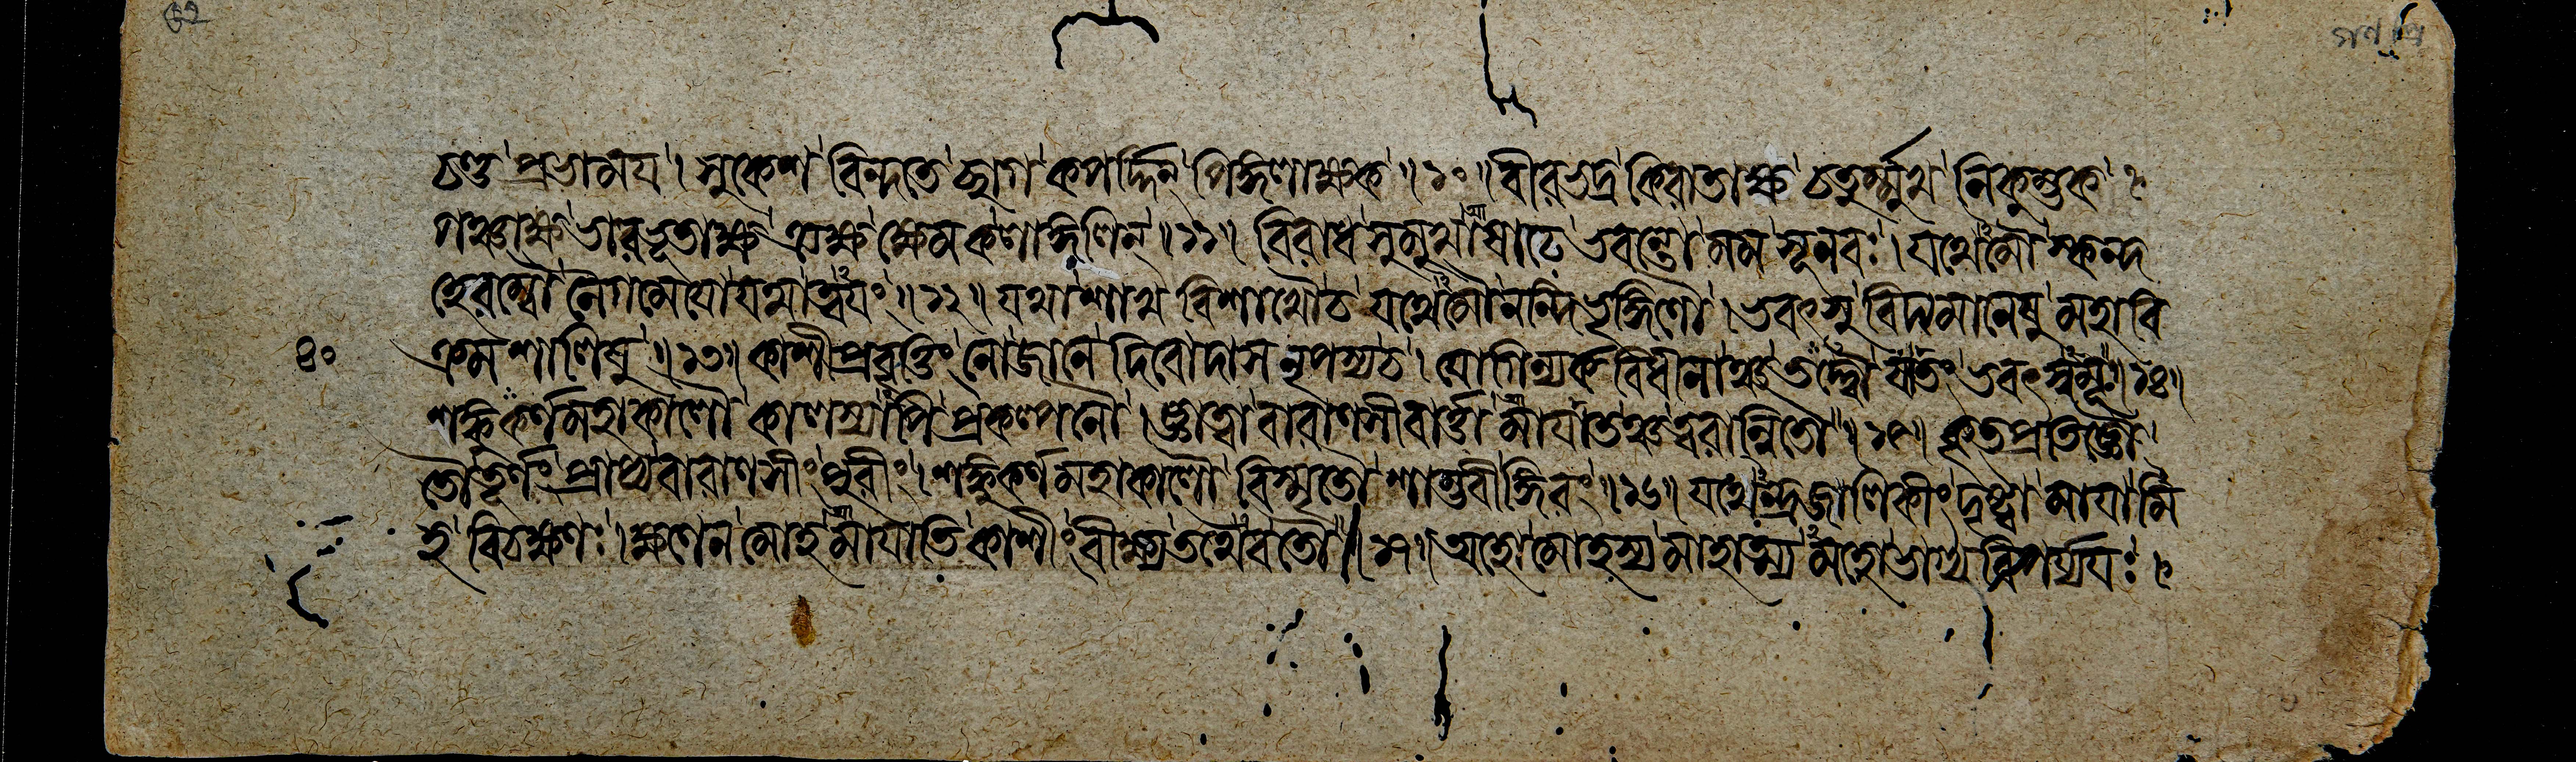 চণ্ড প্রভাময়। সুকেশ বিন্দতে ছাগ কপর্দ্দিন্ পিঙ্গলাক্ষক॥১০॥বীরভদ্র কিরাতাক্ষ চতুর্ম্মুখ নিকুম্ভক
পঞ্চাক্ষ ভারভূতাক্ষ ত্র্যক্ষ ক্ষেমক লাঙ্গলিন্॥১১॥ বিরাধ সুমুখাষাঢে ভবন্তো মম সূনবঃ। যথেমৌ স্কন্দ
হেরম্বৌ নৈগমেয়ো যথা ত্বয়ং॥১২॥ যথা শাখ বিশাখৌ চ যথেমৌ নন্দি ভৃঙ্গিণৌ। ভবৎসু বিদ্যমানেষু মহাবি
ক্রম শালিষু॥১৩॥ কাশীপ্রবৃত্তিং নো জানে দিবোদাস নৃপস্য চ। যোগিন্যর্ক বিধীনাঞ্চ তদ্দ্বৌ যাতং ভবৎস্বমূ॥১৪॥
শঙ্কুকর্ণ মহাকালৌ কালস্যাপি প্রকম্পনৌ। জ্ঞাতুং বারাণসীবার্ত্তামায়াতঞ্চ ত্বরান্বিতৌ॥১৫॥ কৃতপ্রতিজ্ঞৌ
তৌ তূর্ণং প্রাপ্য বারাণসীং পুরীং। শঙ্কুকর্ণ মহাকালৌ বিস্মৃতৌ শাম্ভবীঙ্গিরং॥১৬॥ যথেন্দ্রজালিকীং দৃষ্ট্বা মায়ামি
হ বিচক্ষণঃ। ক্ষণেন মোহমায়াতি কাশীং বীক্ষ্য তথৈব তৌ॥১৭॥ অহো মোহস্য মাহাত্ম্য মহো ভাগ্য বিপর্য্যয়ঃ।
৪০